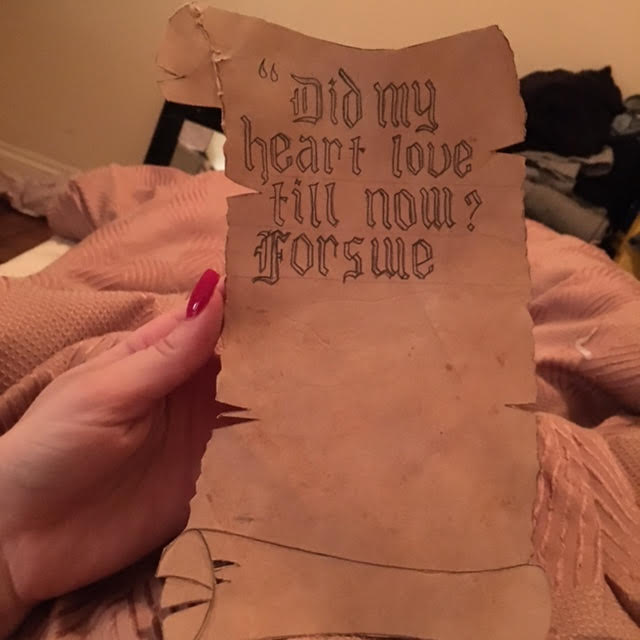 “Did my
heart love
till now?
Forswe